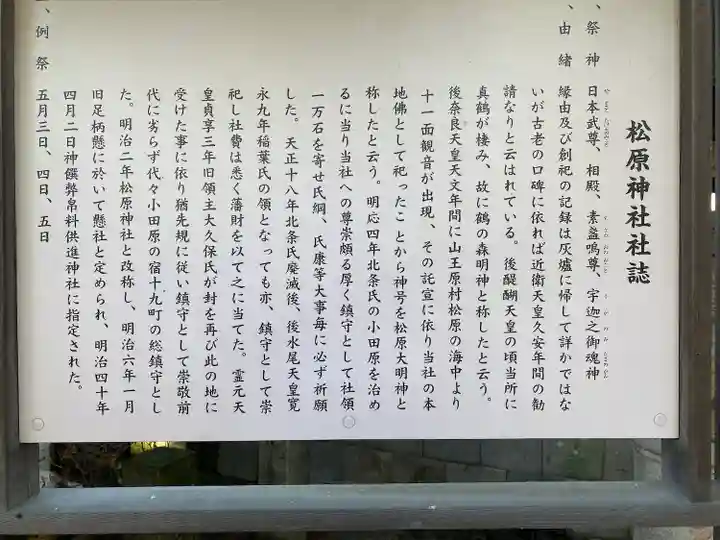 松原神社社誌
、祭神 日本武尊、相殿、素盞嗚尊、宇迦之御魂神
、由緒 縁由及び創祀の記録は灰燼に帰して詳かではな
いが古老の口碑に依れば近衛天皇久安年間の勧
請なりと云はれている。後醍醐天皇の頃当所に
真鶴が棲み、故に鶴の森明神と称したと云う。
後奈良天皇天文年間に山王原村松原の海中より
十一面観音が出現、その託宣に依り当社の本
地佛として祀ったことから神号を松原大明神と
称したと云う。明応四年北条氏の小田原を治め
るに当り当社への尊崇頗る厚く鎮守として社領
一万石を寄せ氏綱、氏康等大事毎に必ず祈願
した。天正十八年北条氏廃滅後、後水尾天皇寛
永九年稲葉氏の領となっても亦、鎮守として崇
祀し社費は悉く藩財を以て之に当てた。霊元天
皇貞享三年旧領主大久保氏が封を再び此の地に
受けた事に依り猶先規に従い鎮守として崇敬前
代に劣らず代々小田原の宿十九町の総鎮守とし
た。明治二年松原神社と改称し、明治六年一月
旧足柄懸に於いて懸社と定められ、明治四十年
四月二日神饌弊帛料供進神社に指定された。
、例祭 五月三日、四日、五日